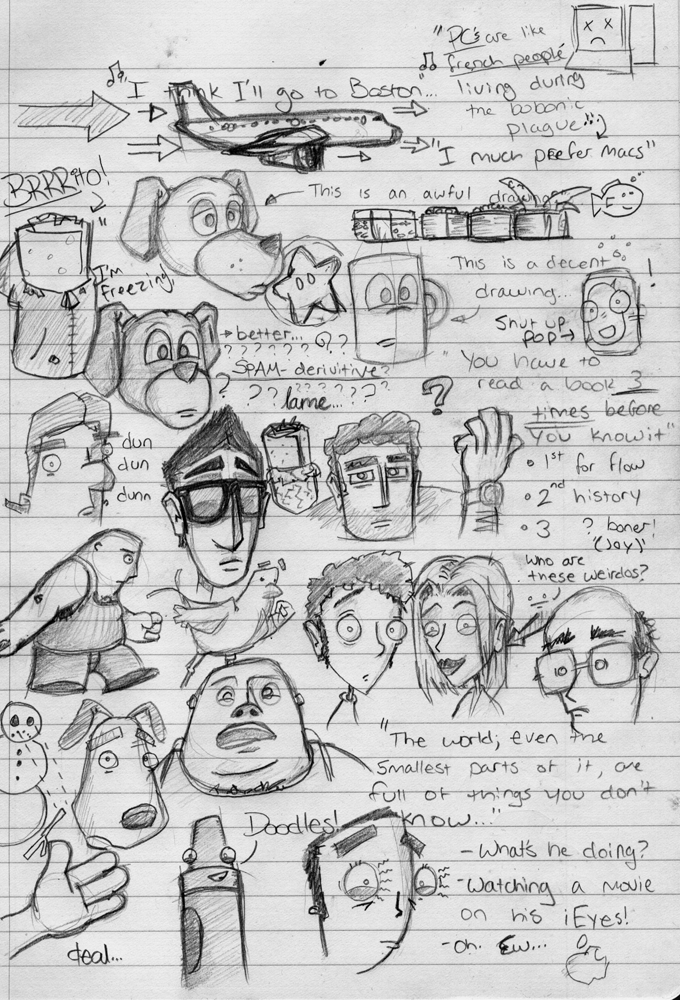 "PC's are like
french people
living during
the bubonic
plague"
"I think I'll go to Boston..."
"I much prefer macs"
BRRRito!
This is an awful drawing
"I'm
freezing"
This is a decent
drawing...
!
Shut up,
POP
better...
? ? ? ? ? ? ? ? ?
SPAM-derivitive?
? ? ? ? ? ? ? ?
lame...
?
"You have to
read a book 3
times before
you know it"
• 1st for flow
• 2nd history
• 3 ? boner!
(Joy)
dun
dun
dunn
who are
these weirdos?
"The world; even the
smallest parts of it, are
full of things you don't
know..."
Doodles!
- What's he doing?
- Watching a movie
on his iEyes!
- oh. Ew...
deal...